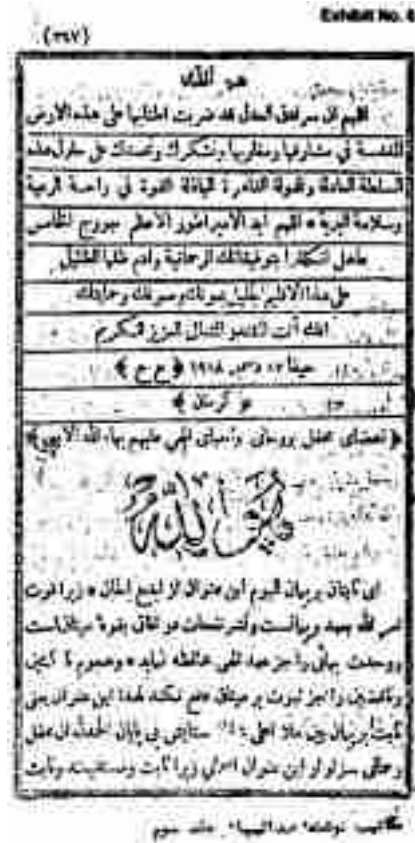 Exhibit No. 6
(٣٤٧)
هو الله
اللهم ان سرادق العدل قد ضربت اطنابها على هذه الأرض
المقدسة فی مشارقها ومغاربها ونشكرك ونحمدك على حلول هذه
السلطة العادلة والدولة القاهرة الباذلة القوة فی راحة الرعية
وسلامة البرية * اللهم أيد الامبراطور الأعظم جورج الخامس
عاهل انكلترا بتوفيقاتك الرحمانية وادم ظلها الظليل
على هذا الاقليم الجليل بعونك وصونك وحمايتك
انك أنت المقتدر المتعال العزيز الكريم
حيفا ١٩١٨ ﴿ ع ع ﴾
﴿ كرمان ﴾
﴿ اعضای محفل روحانی واحبای الهی عليهم بهاء الله الابهی ﴾
هو الله
ای ثابتان بر پيمان اليوم اين عنوان از ابدع الحان * زيرا قوت
امر الله بعهد و پيمانست ونشر نفحات در آفاق بقوه ميثاق است
ووحدت بهائی را جز عهد الهی محافظه ننمايد * وهجوم
را جز ثبوت بر ميثاق منع نكند لهذا اين عنوان يعنی
ثابت بر پيمان بين ملا اعلی ستايش بی پايان الحمد لله آن محفل
روحانی سزاوار اين عنوان زيرا ثابت ومستقيمند وثابت
مكاتيب عبد البهاء، جلد سوم